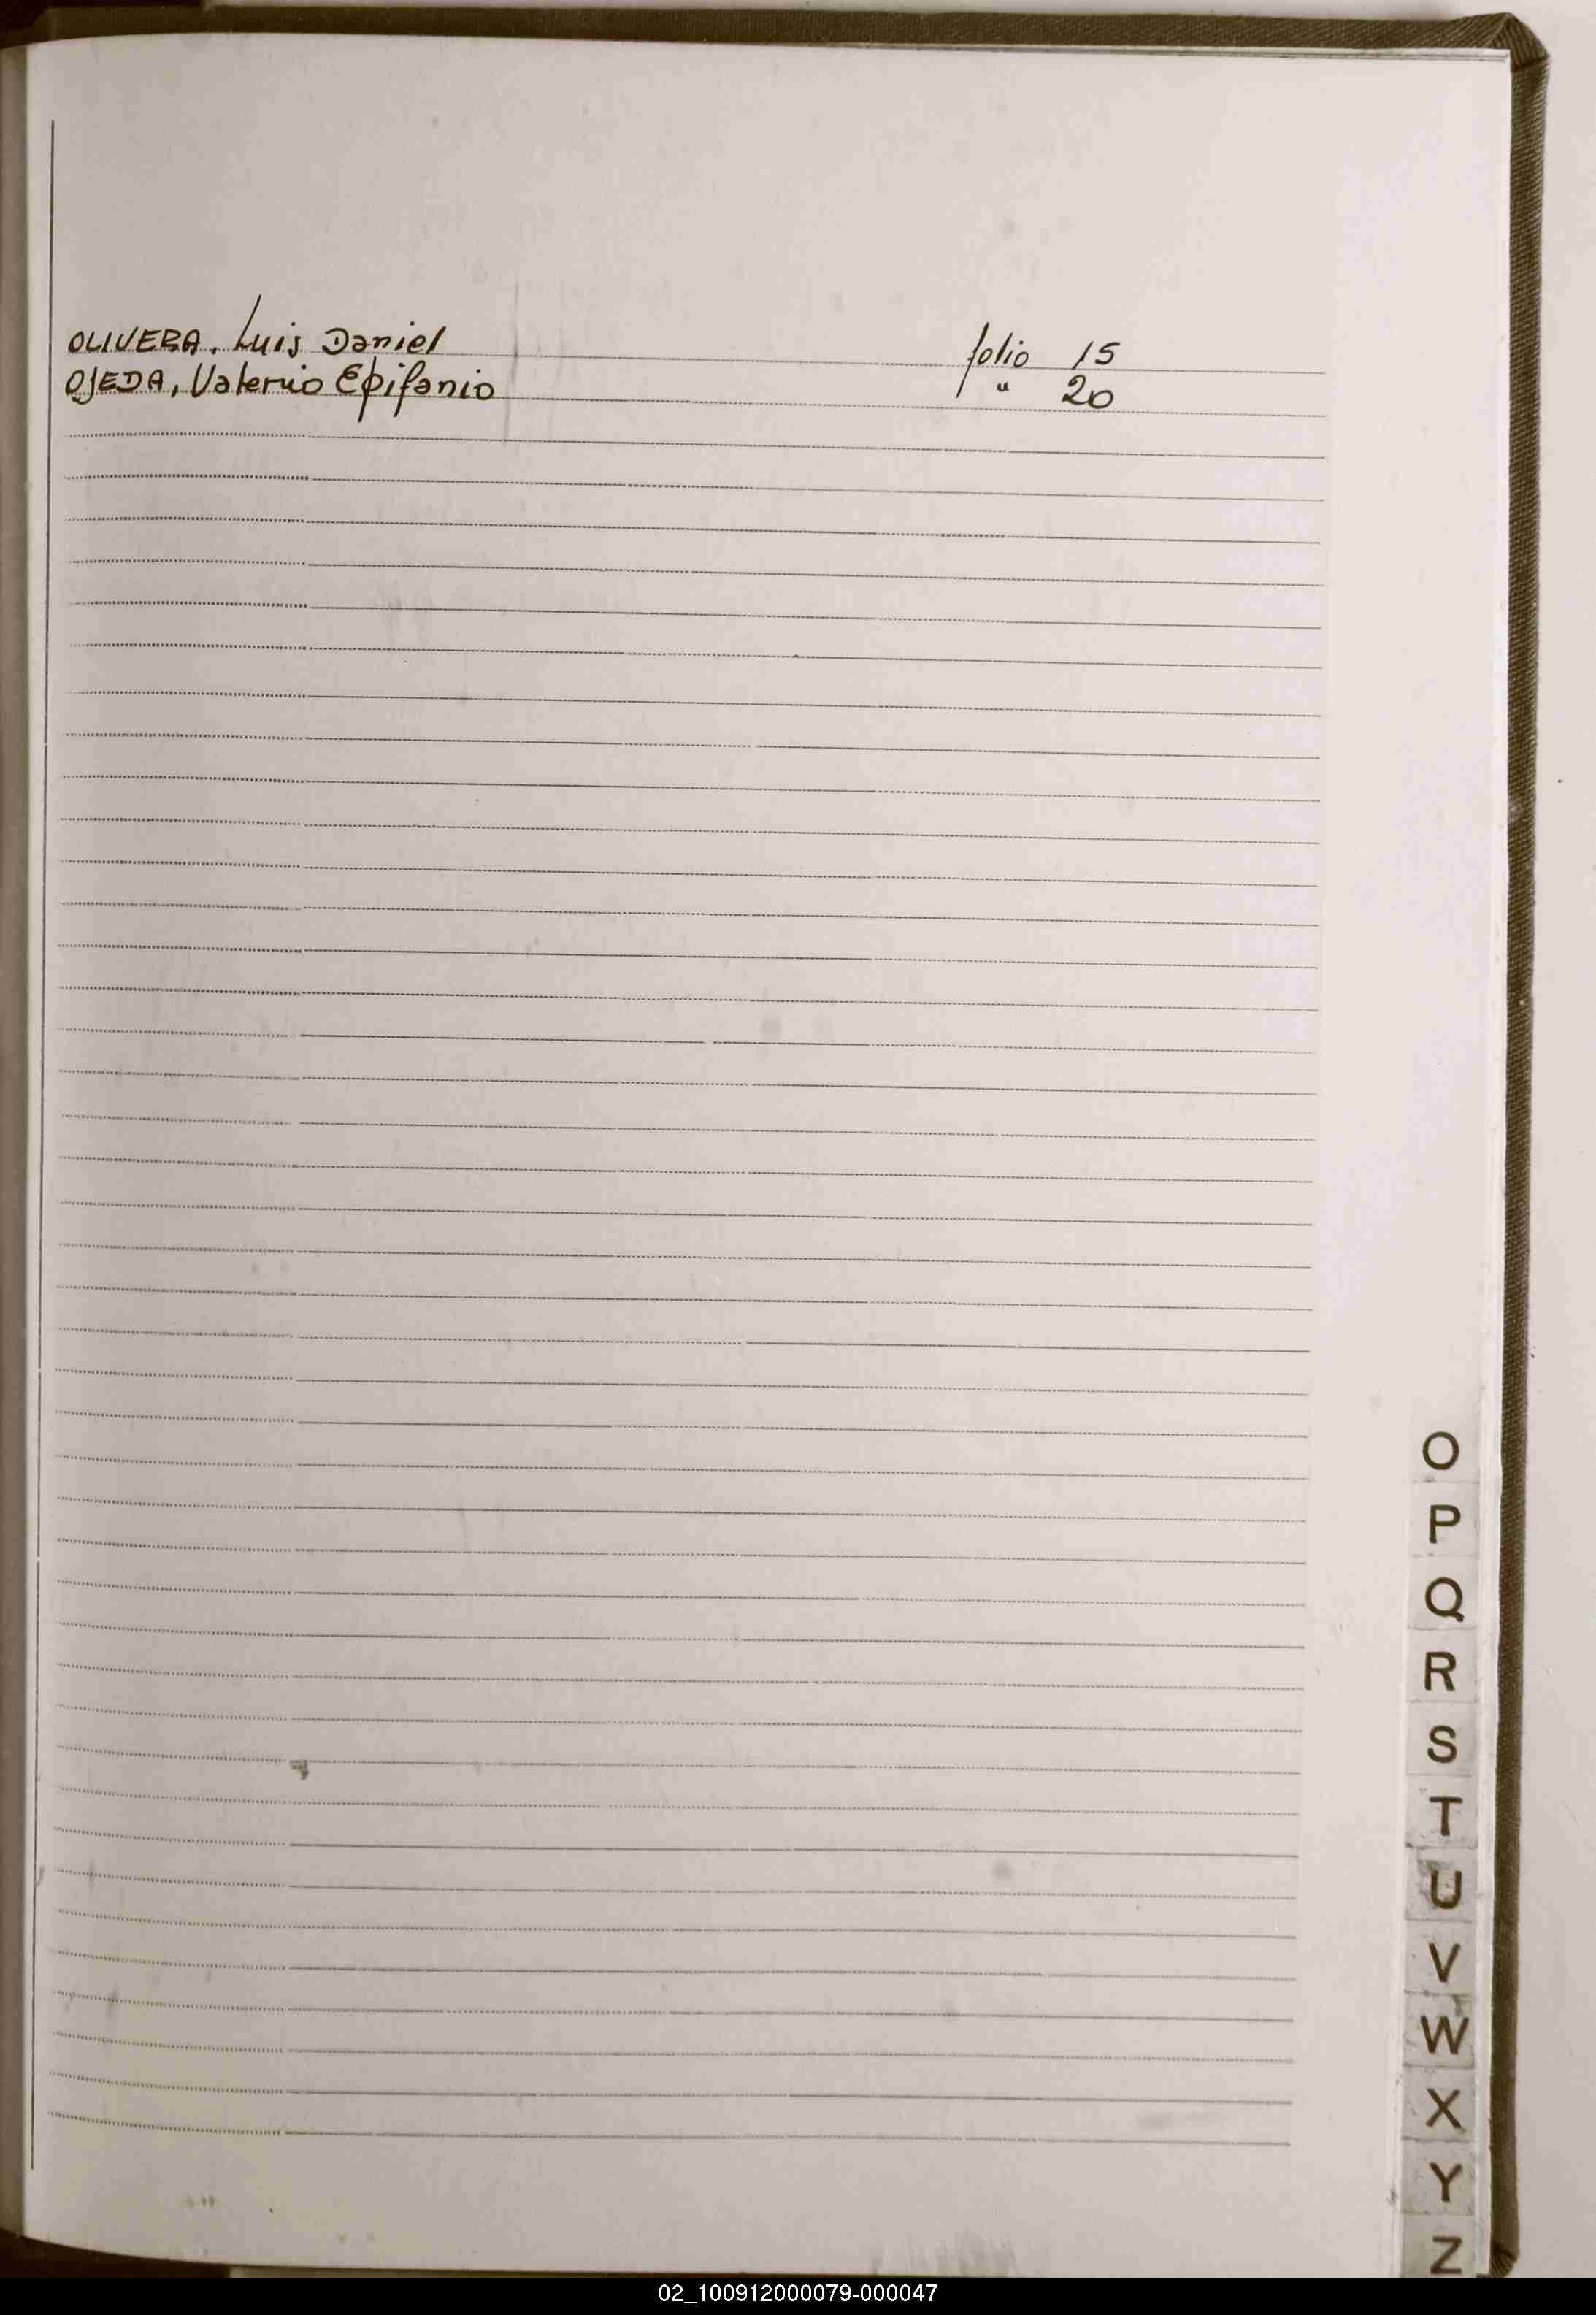 OLIVERA, Luis Daniel folio 15
OJEDA, Valerio Epifanio " 20
O
P
Q
R
S
T
U
V
W
X
Y
Z
02_100912000079-000047